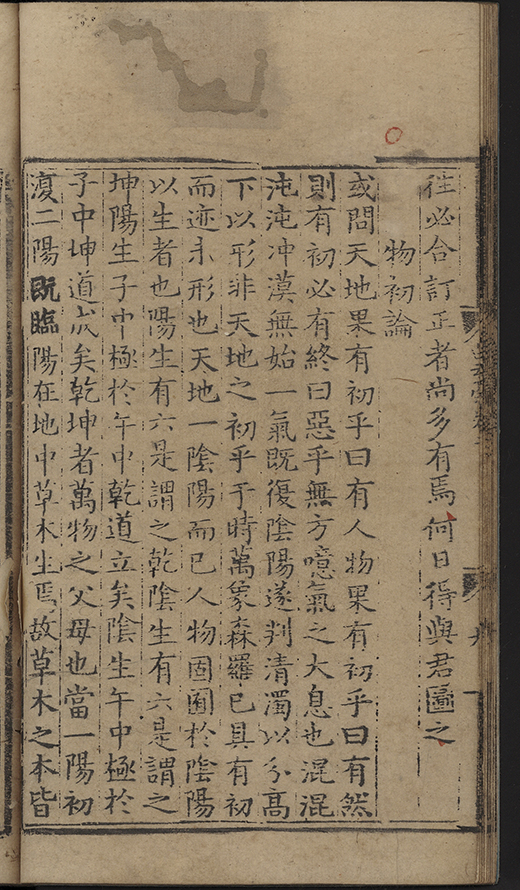 徃必合訂正者尚多有焉何日得與君圖之
物初論
或問天地果有初乎曰有人物果有初乎曰有然
則有初必有終曰惡乎無方噫氣之大息也混混
沌沌冲漠無始一氣既復陰陽遂判清濁以分高
下以形非天地之初乎于時萬象森羅已具有初
而迹未形也天地一陰陽而已人物固囿於陰陽
以生者也陽生有六是謂之乾陰生有六是謂之
坤陽生子中極於午中乾道立矣陰生午中極於
子中坤道成矣乾坤者萬物之父母也當一陽初
復二陽既臨陽在地中草木生焉故草木之本皆